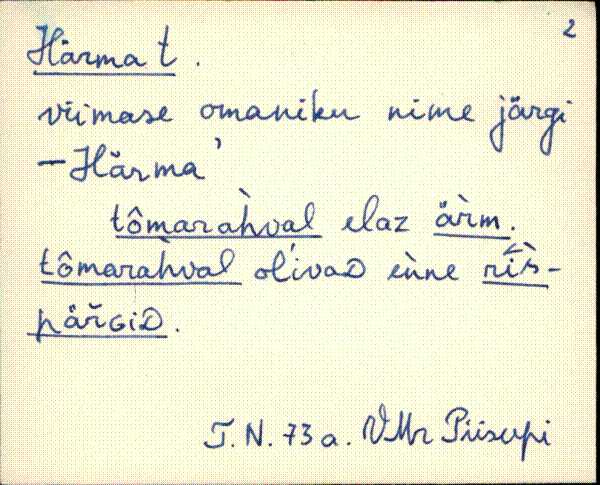 2
Härma t.
viimase omaniku nime järgi
– Härma'
tômaràhval elaz är̀m.
tômaràhval olĺivaD eǹne rī̀s-
päřGiD.
T. N. 73 a. VMr Piisupi